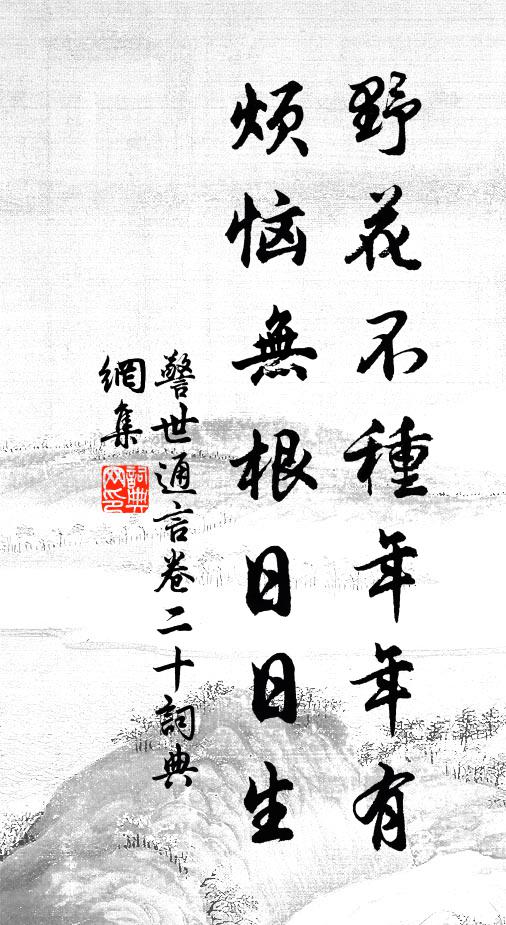 野花不種年年有
煩惱無根日日生
警世通言卷二十詞典
網集
詞典网印